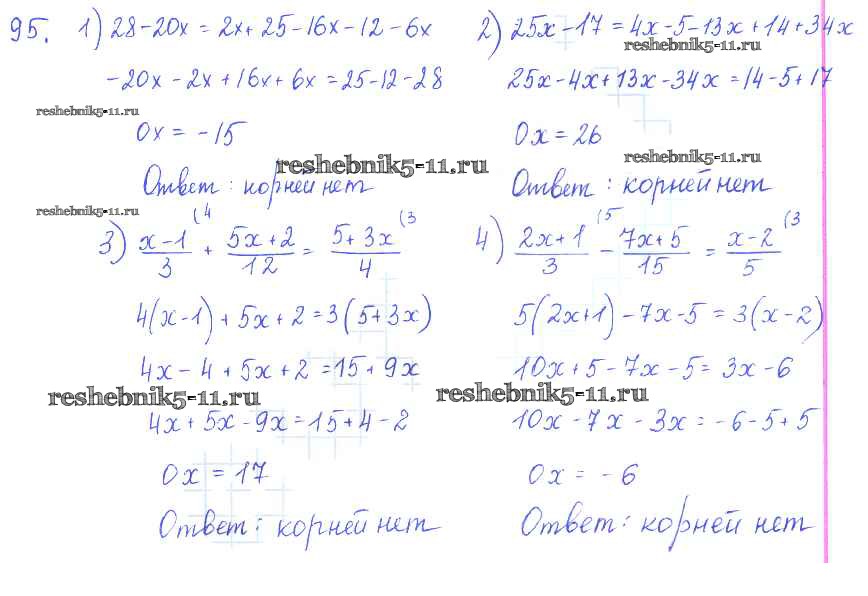 95. 1) 28-20x = 2x+25-16x-12-6x
-20x-2x+16x+6x=25-12-28
0x = -15
Ответ: корней нет
2) 25x-17=4x-5-13x+14+34x
25x-4x+13x-34x=14-5+17
0x=26
Ответ: корней нет
3) (x-1)/3 (4 + (5x+2)/12 = (5+3x)/4 (3
4(x-1)+5x+2=3(5+3x)
4x-4+5x+2=15+9x
4x+5x-9x=15+4-2
0x = 17
Ответ: корней нет
4) (2x+1)/3 (5 - (7x+5)/15 = (x-2)/5 (3
5(2x+1)-7x-5=3(x-2)
10x+5-7x-5=3x-6
10x-7x-3x=-6-5+5
0x = -6
Ответ: корней нет
reshebnik5-11.ru
reshebnik5-11.ru
reshebnik5-11.ru
reshebnik5-11.ru
reshebnik5-11.ru
reshebnik5-11.ru
reshebnik5-11.ru